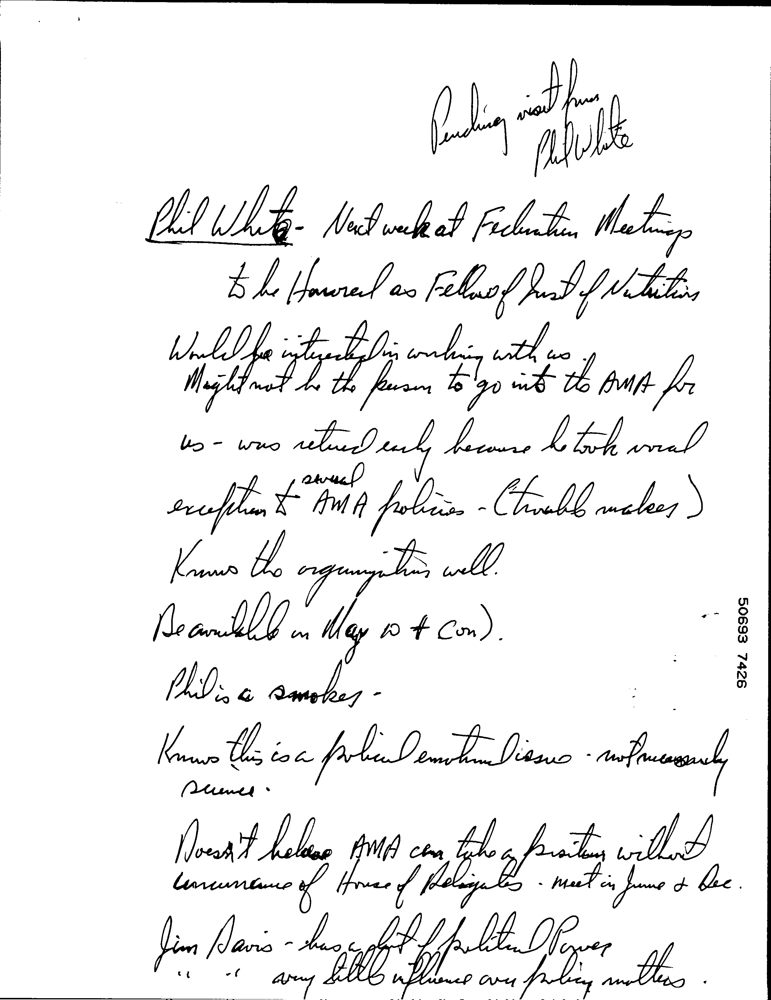 Pending visit from
Phil White
Phil White - Next week at Federation Meetings
to be Honored as Fellow of Inst of Nutrition
Would be interested in working with us.
Might not be the person to go into the AMA for
us - was retired early because he took vocal
several
exception to AMA policies - (trouble maker)
Knows the organization well.
Be available in May
Phil is a smoker -
Knows this is a political emotional issue - not necessarily
science.
Doesn't believe AMA can take a position without
concurrence of House of Delegates - meet in June & Dec.
Jim Davis - has a lot of political Power
" " very little influence over policy matters.
50693 7426